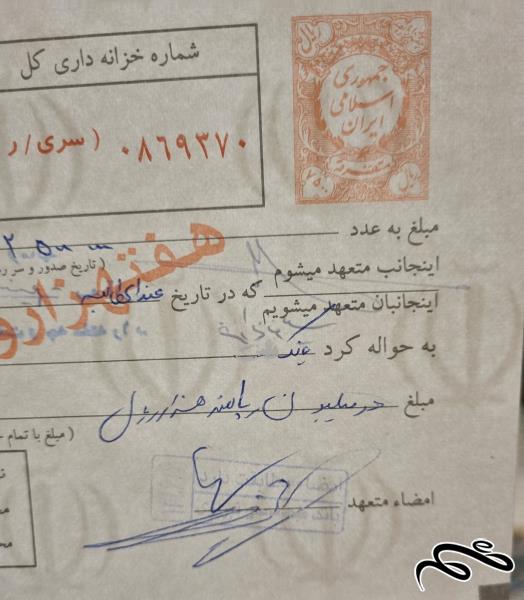 شماره خزانه داری کل
۰۸۶۹۳۷۰ ( سری/ ر
ریال
جمهوری
اسلامی
ایران
متفرقه
ریال
مبلغ به عدد
( تاریخ صدور و سر ر
اینجانب متعهد میشوم
اینجانبان متعهد میشویم
که در تاریخ عندالمطالبه
هفتهزار
به حواله کرد
مبلغ دو میلیون و پانصد هزار ریال
( مبلغ با تمام
امضاء متعهد